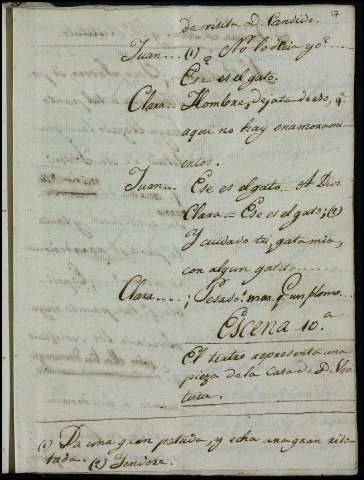 17
de visita D. Candido.
Juan... (1) No lo decia yo?
Ese es el gato.
Clara... Hombre, dejate de eso, q.e
aqui no hay enamorami-
entos.
Juan... Ese es el gato = A Dios
Clara = Ese es el gato; (2)
Y cuidado tu, gata mia,
con algun gatito......
Clara..... ¡Pesado! mas q. un plomo...
Escena 10.a
El teatro representa una
pieza de la Casa de D. Ven-
tura.
(1) Da una gran patada, y echa una gran riso-
tada. (2) Yendose.